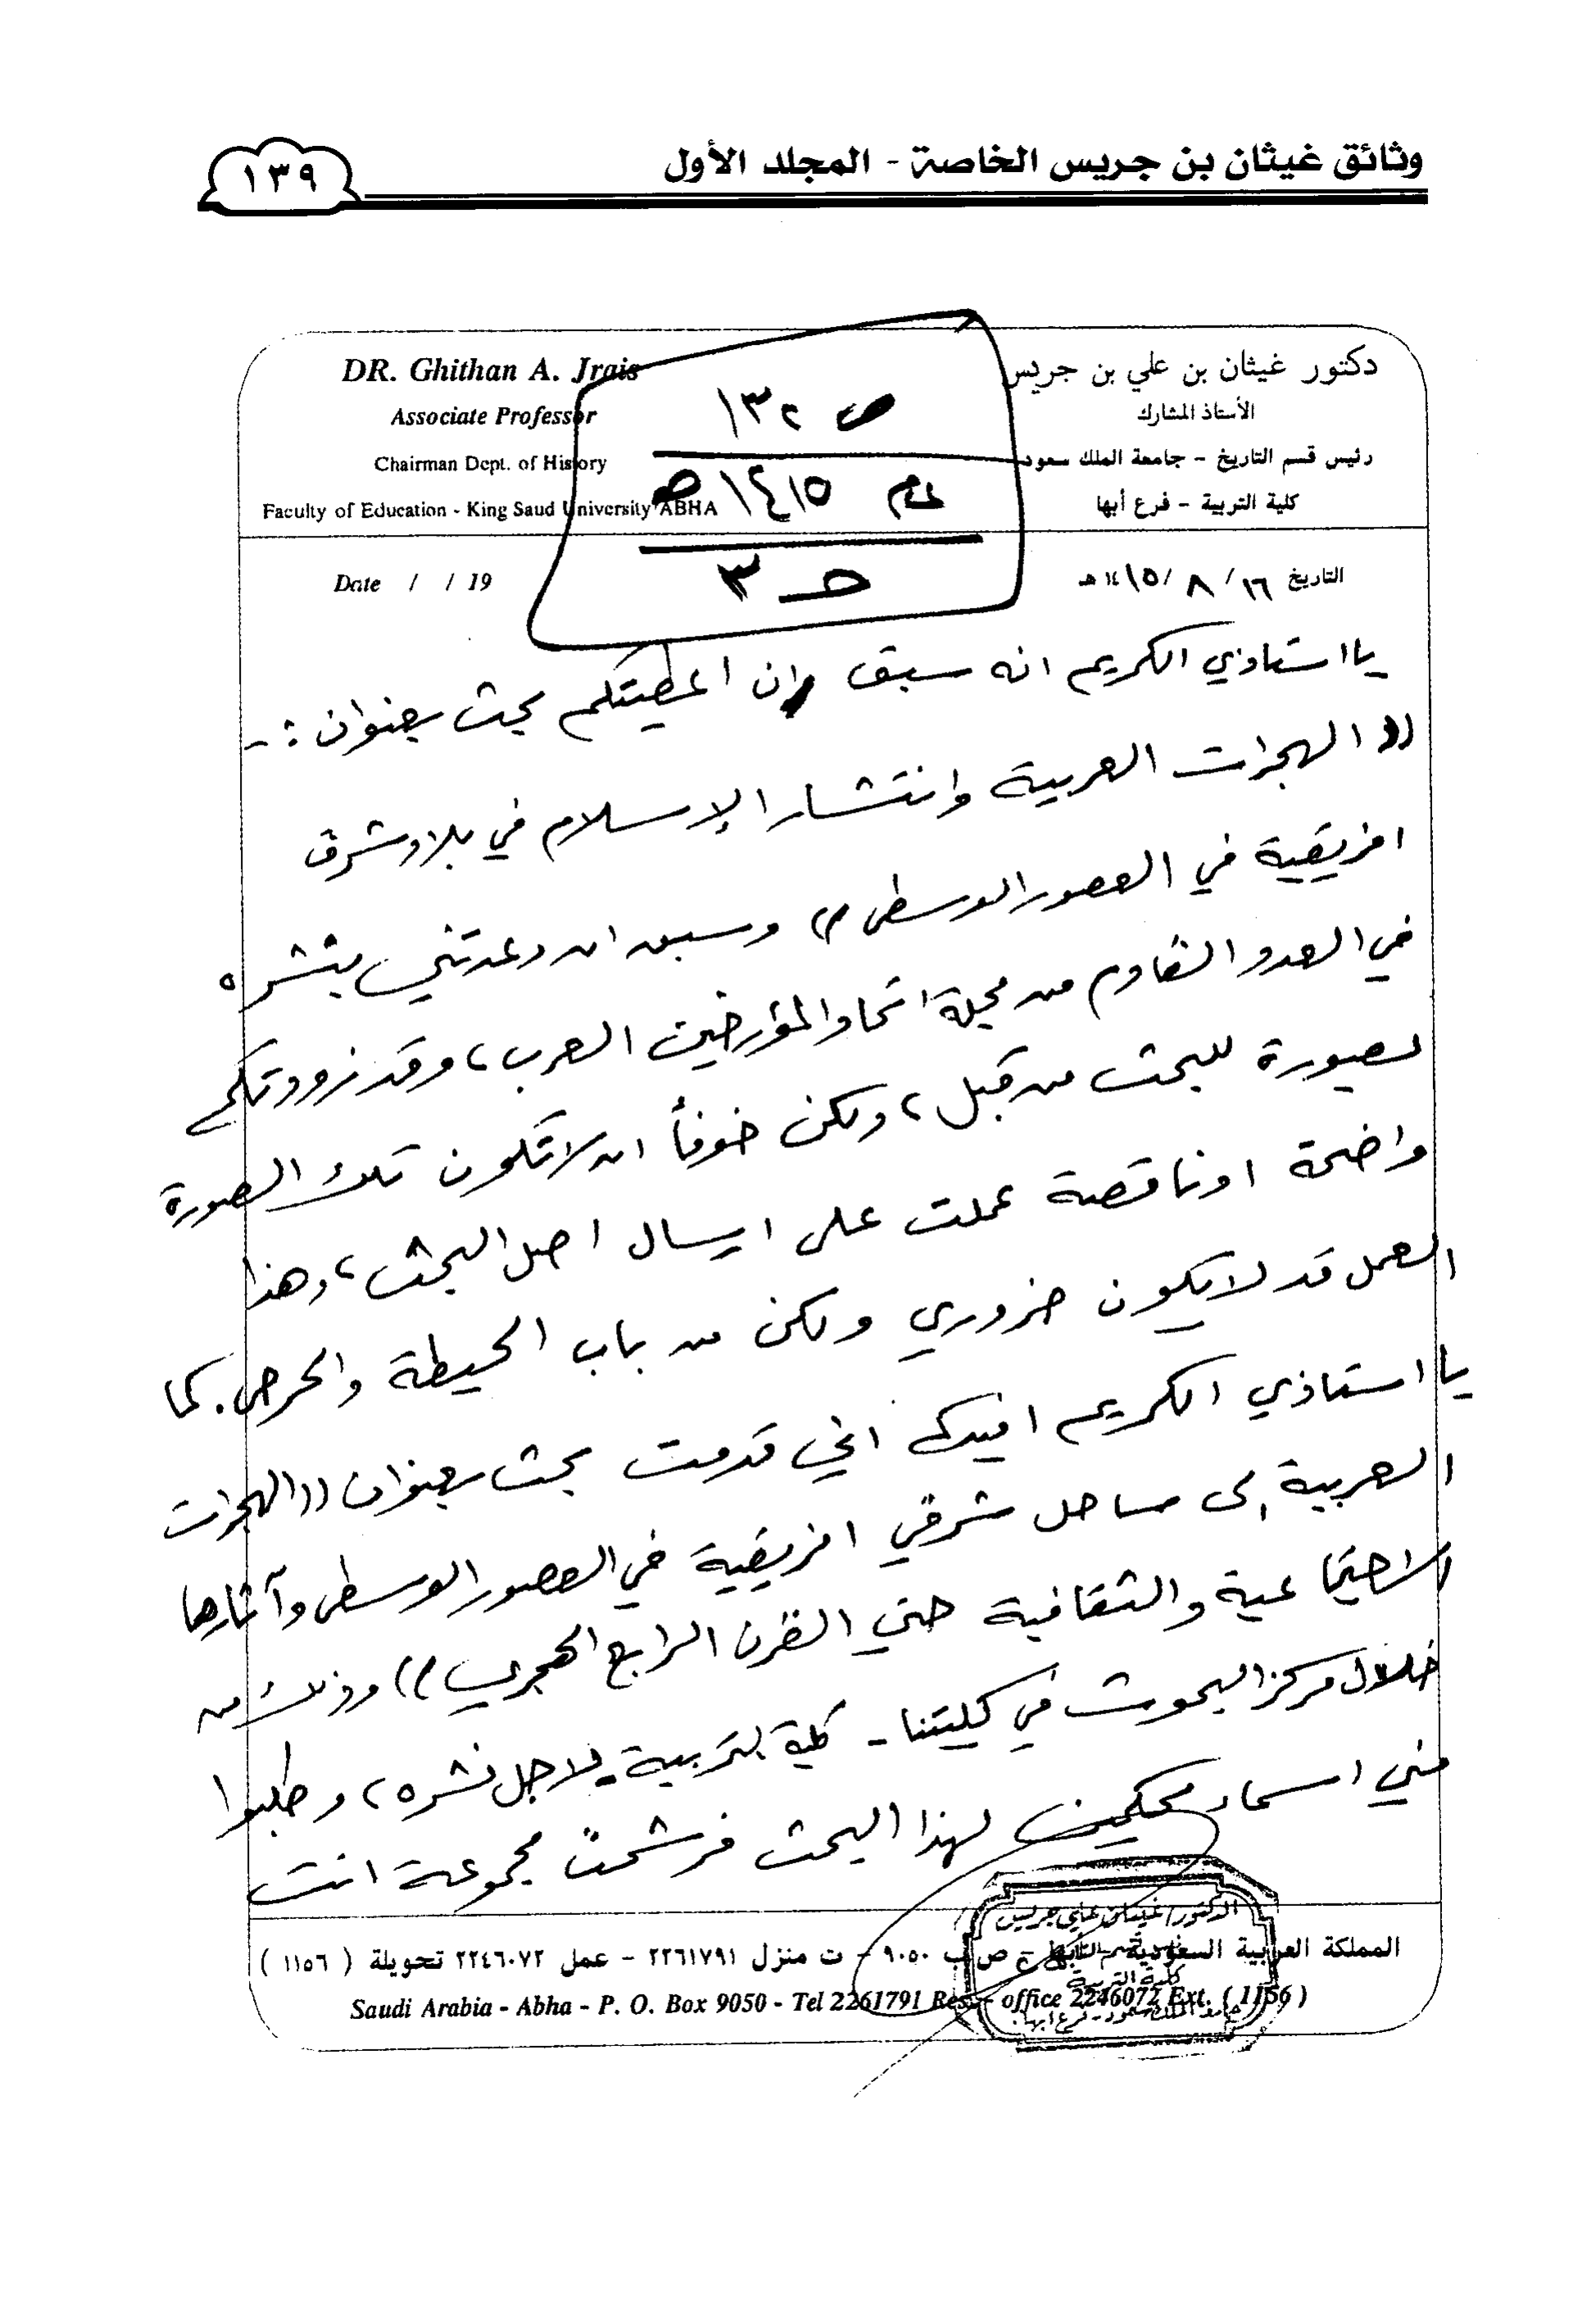 وثائق غيثان بن جريس الخاصة - المجلد الأول
١٣٩
DR. Ghithan A. Jrais
Associate Professor
Chairman Dept. of History
Faculty of Education - King Saud University ABHA
دكتور غيثان بن علي بن جريس
الأستاذ المشارك
رئيس قسم التاريخ - جامعة الملك سعود
كلية التربية - فرع أبها
ص ١٣٢
عام ١٤١٥ هـ
حـ ٣
Date / / 19
التاريخ ١٦ / ٨ / ١٤١٥ هـ
يا استاذي الكريم انه سبق وان اعطيتكم بحث بعنوان :-
(( الهجرات العربية وانتشار الإسلام في بلاد شرق
افريقية في العصور الوسطى )) وسبق ان وعدتني بنشره
في العدد القادم من مجلة اتحاد المؤرخين العرب، وقد زودتكم
بصورة للبحث من قبل، ولكن خوفاً ان لا تكون تلك الصورة
واضحة او ناقصة عملت على ارسال اصل البحث، وهذا
العمل قد لا يكون ضروري ولكن من باب الحيطة والحرص. كما
يا استاذي الكريم افيدكم اني قدمت بحث بعنوان (( الهجرات
العربية إلى ساحل شرقي افريقية في العصور الوسطى وآثارها
الاجتماعية والثقافية حتى القرن الرابع الهجري )) وذلك من
خلال مركز البحوث في كليتنا - كلية التربية - لاجل نشره، وطلبوا
مني اسماء محكمين لهذا البحث فرشحت مجموعة انت
الدكتور/ غيثان علي جريس
كلية التربية
جامعة الملك سعود - فرع ابها
المملكة العربية السعودية - أبها - ص ب ٩٠٥٠ - ت منزل ٢٢٦١٧٩١ - عمل ٢٢٤٦٠٧٢ تحويلة ( ١١٥٦ )
Saudi Arabia - Abha - P. O. Box 9050 - Tel 2261791 Res. - office 2246072 Ext. ( 1156 )